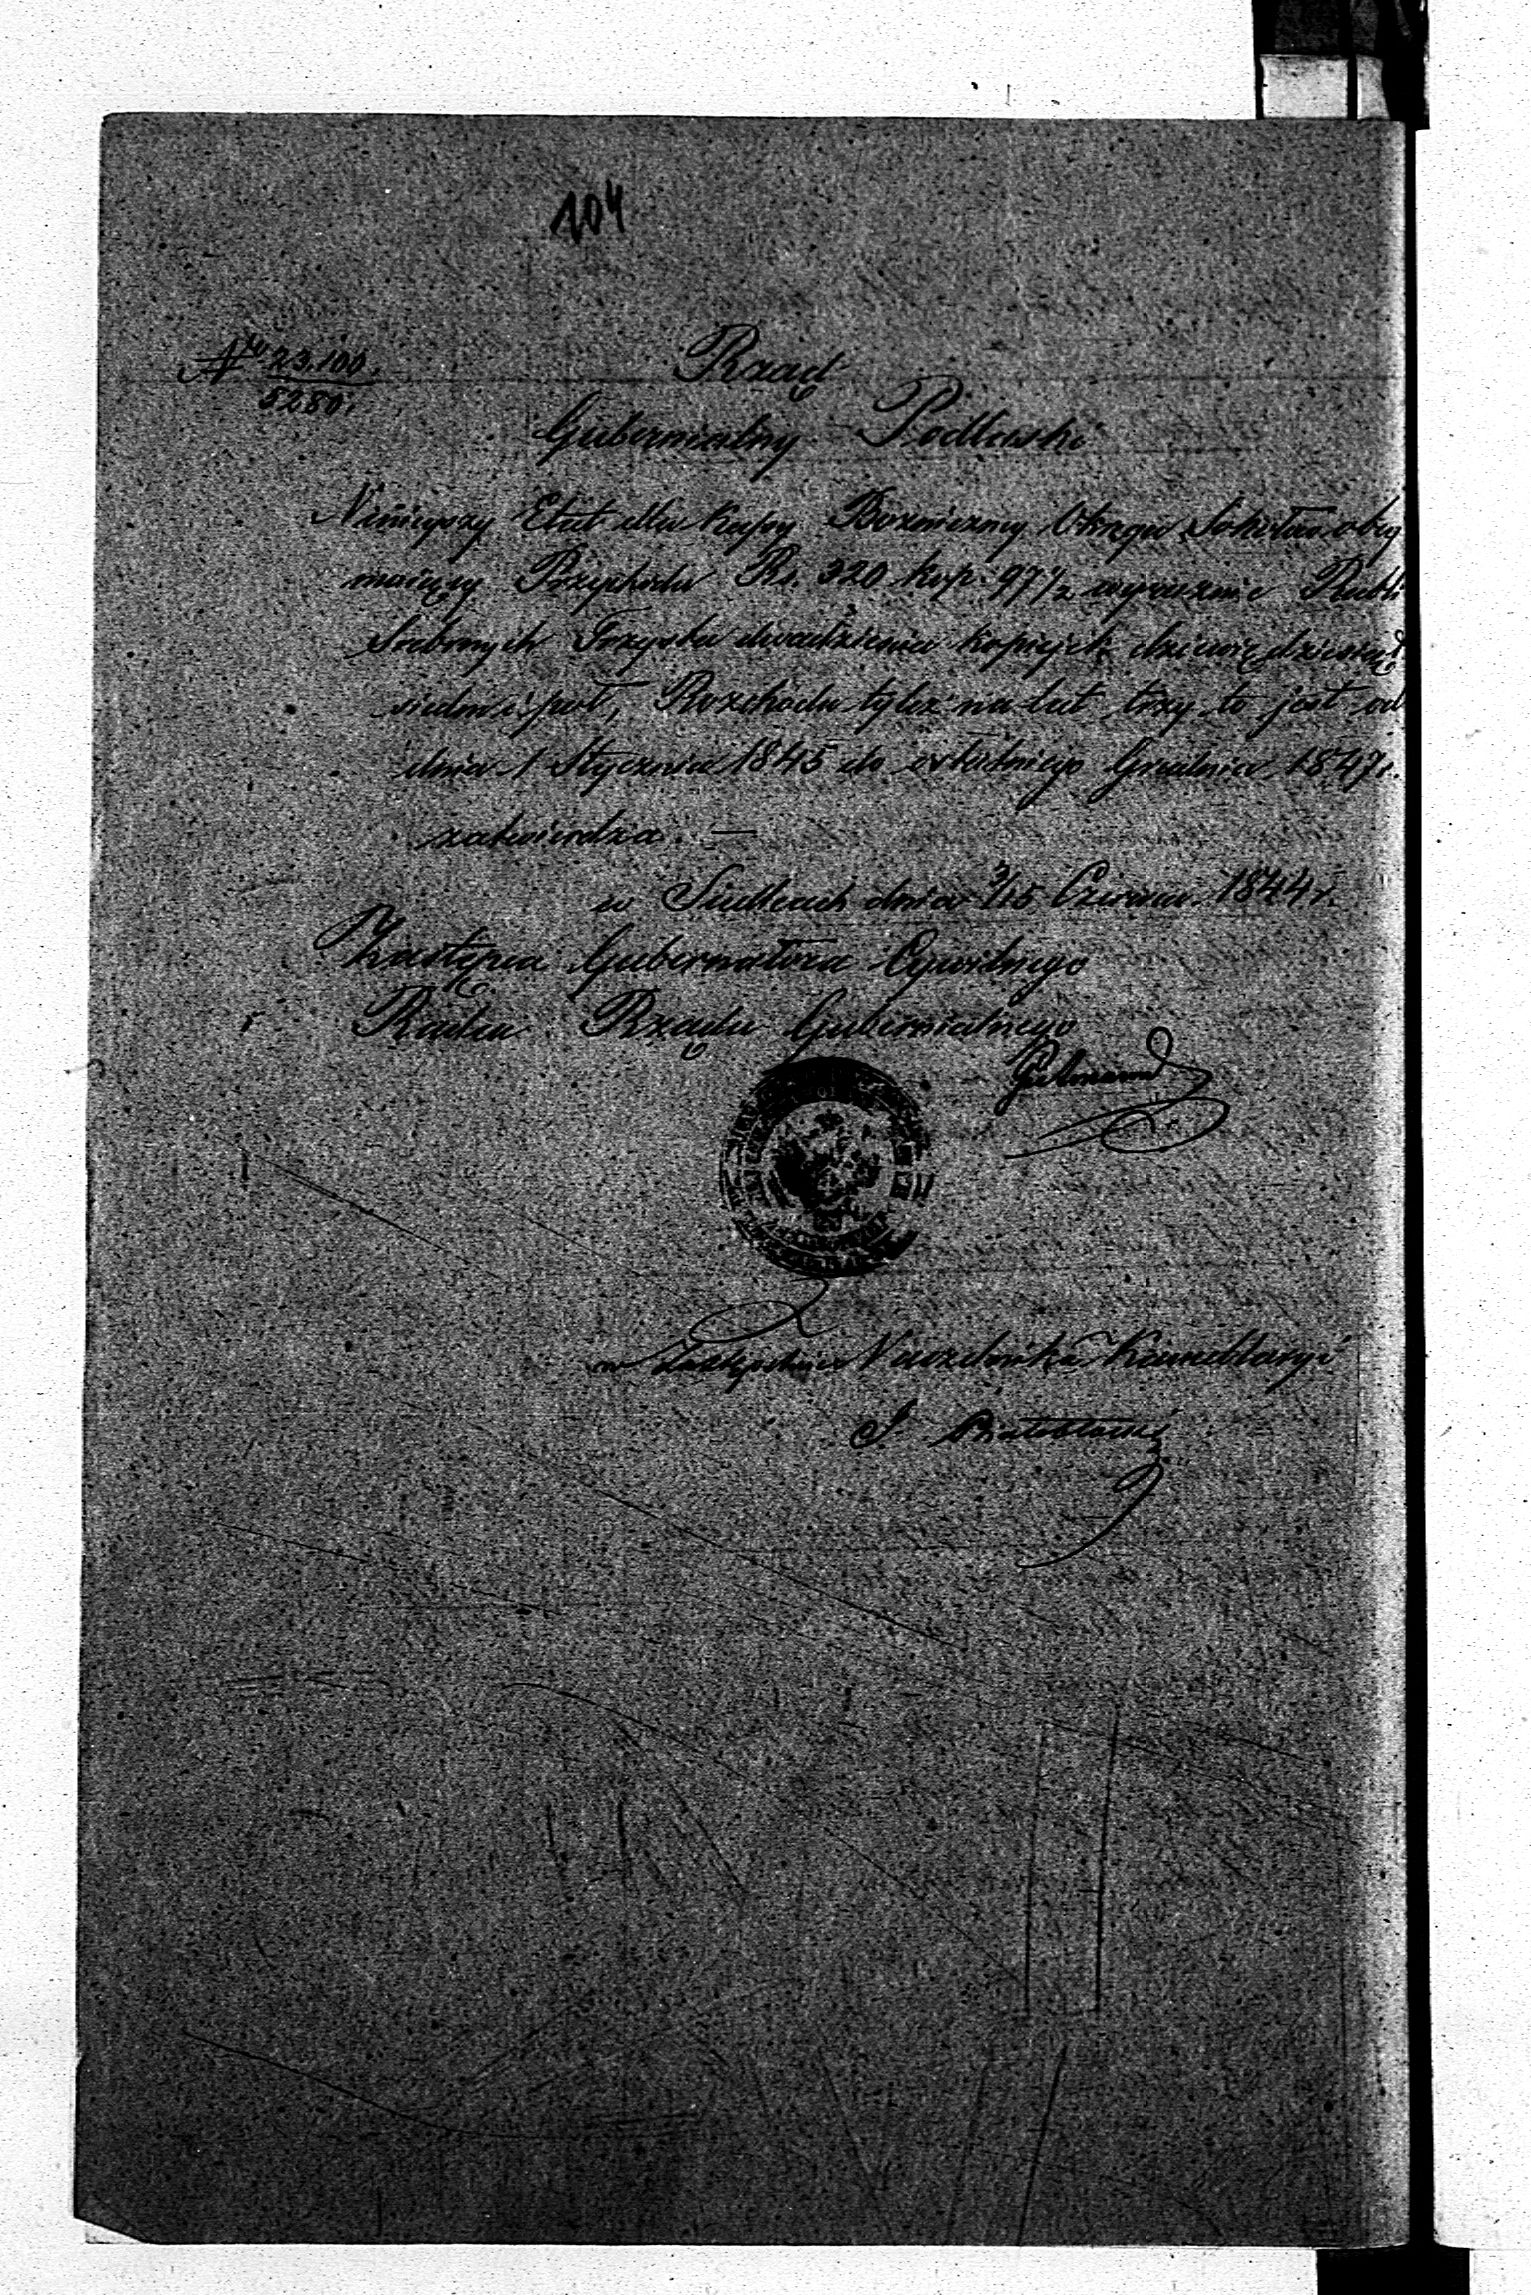 104
Nro 23,100.
5280.
Rząd
Gubernialny Podlaski
Niniejszy Etat dla Kassy Bozniczney Okręgu Sokołow obej
mujący Przychodu Rs. 320 kop. 97 1/2 wyraznie Rubli
Srebrnych Trzysta dwadzieścia kopiejek dziewięćdziesiąt
siedm i puł, Rozchodu tyleż na lat trzy to jest od
dnia 1 Stycznia 1845 do ostatniego Grudnia 1847 r.
zatwierdza. —
w Siedlcach dnia 3/15 Czerwca 1844 r.
Zastępca Gubernatora Cywilnego
Radca Rządu Gubernialnego
w Zastępstwie Naczelnika Kancellaryi
J.